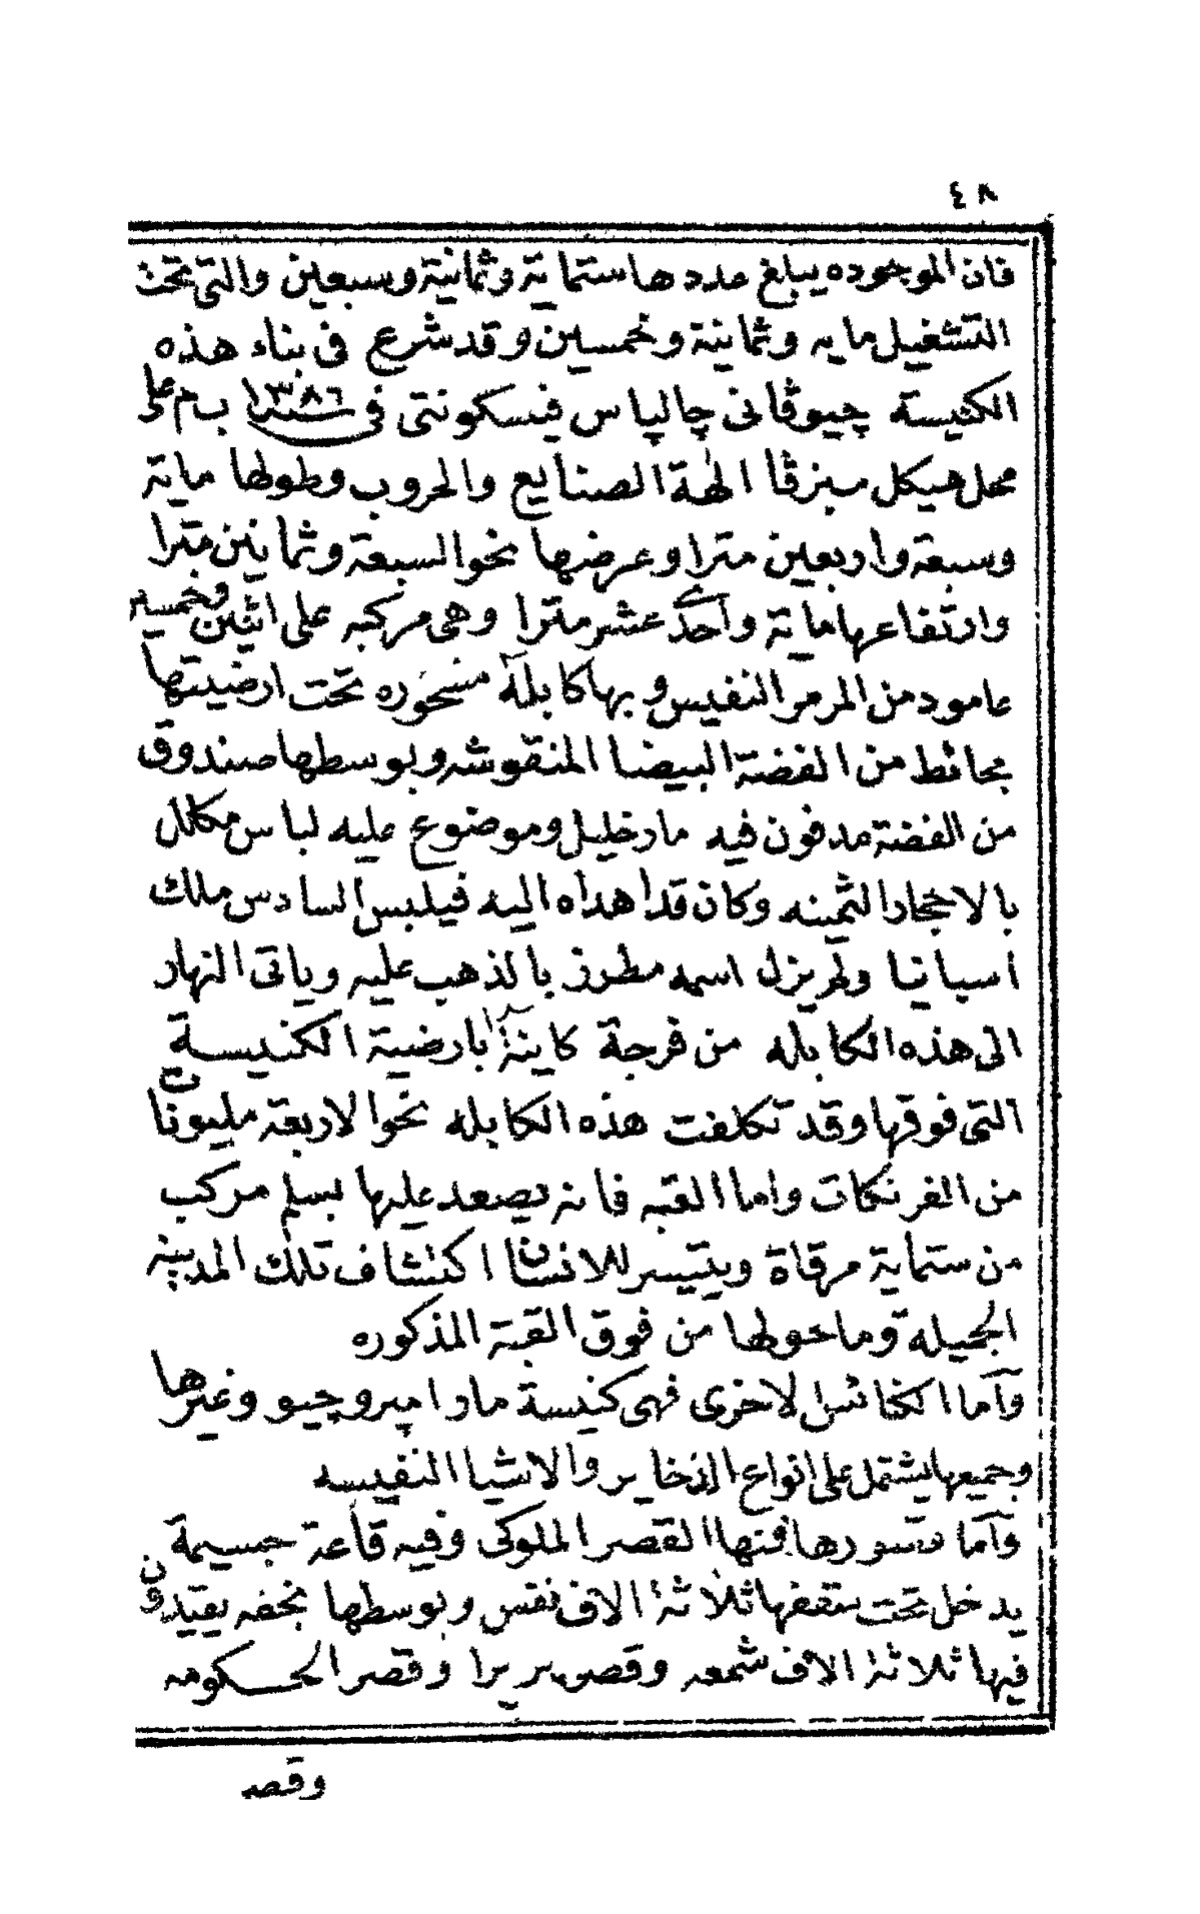 ٤٨
فان الموجوده يبلغ عددها ستماية وثمانية وسبعين والتى تحت
التشغيل مايه وثمانية وخمسين وقد شرع فى بناء هذه
الكنيسة چيوڤانى چالياس فيسكونتى فى سنة ١٣٨٦ ب م على
محل هيكل مينرڤا الهة الصنايع والحروب وطولها ماية
وسبعة واربعين مترا وعرضها نحو السبعة وثمانين مترا
وارتفاعها ماية وأحدى عشر مترا وهى مركبه على اثنين وخمسين
عامود من المرمر النفيس وبها كابلة منحوره تحت ارضيتها
بحائط من الفضة البيضا المنقوشه وبوسطها صندوق
من الفضة مدفون فيه مار خليل وموضوع عليه لباس مكلل
بالاحجار الثمينه وكان قد اهداه اليه فيليبس السادس ملك
اسبانيا ولم يزل اسمه مطرز بالذهب عليه وياتى النهار
الى هذه الكابله من فرجة كاينة بارضية الكنيسة
التى فوقها وقد تكلفت هذه الكابله نحو الاربعة مليونات
من الفرنكات واما القبه فانه يصعد عليها بسلم مركب
من ستماية مرقاة ويتيسر للانسان اكتشاف تلك المدينه
الجميله وما حولها من فوق القبة المذكوره
وأما الكنائس لاخرى فهى كنيسة مار امبروجيو وغيرها
وجميعها يشتمل على انواع الذخاير والاشيا النفيسه
وأما قسورها فمنها القصر الملوكى وفيه قاعة جسيمة
يدخل تحت سقفها ثلاثة الاف نفس وبوسطها نجفه يقيدون
فيها ثلاثة الاف شمعه وقصر بريرا وقصر الحكومه
وقصر